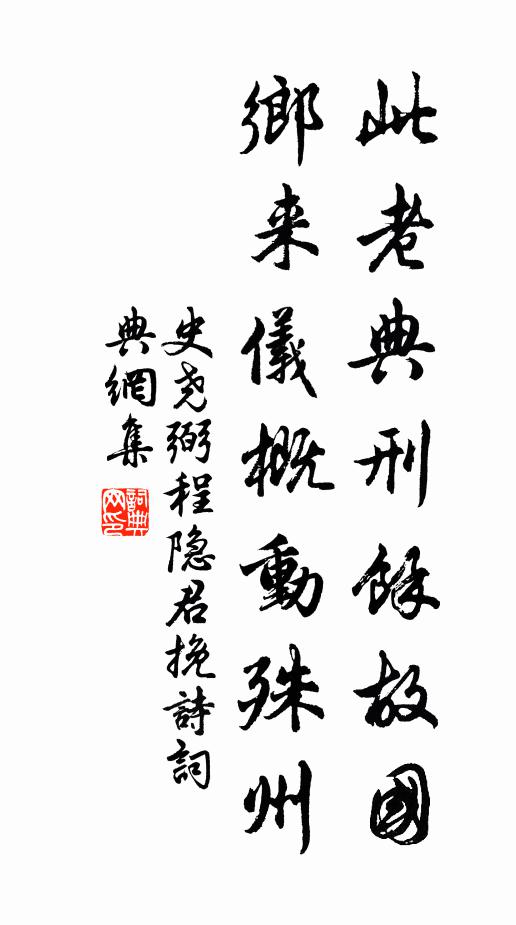 此老典刑餘故國
鄉来儀概動殊州
史尧弼程隐君挽詩詞
典網集
詞典网印